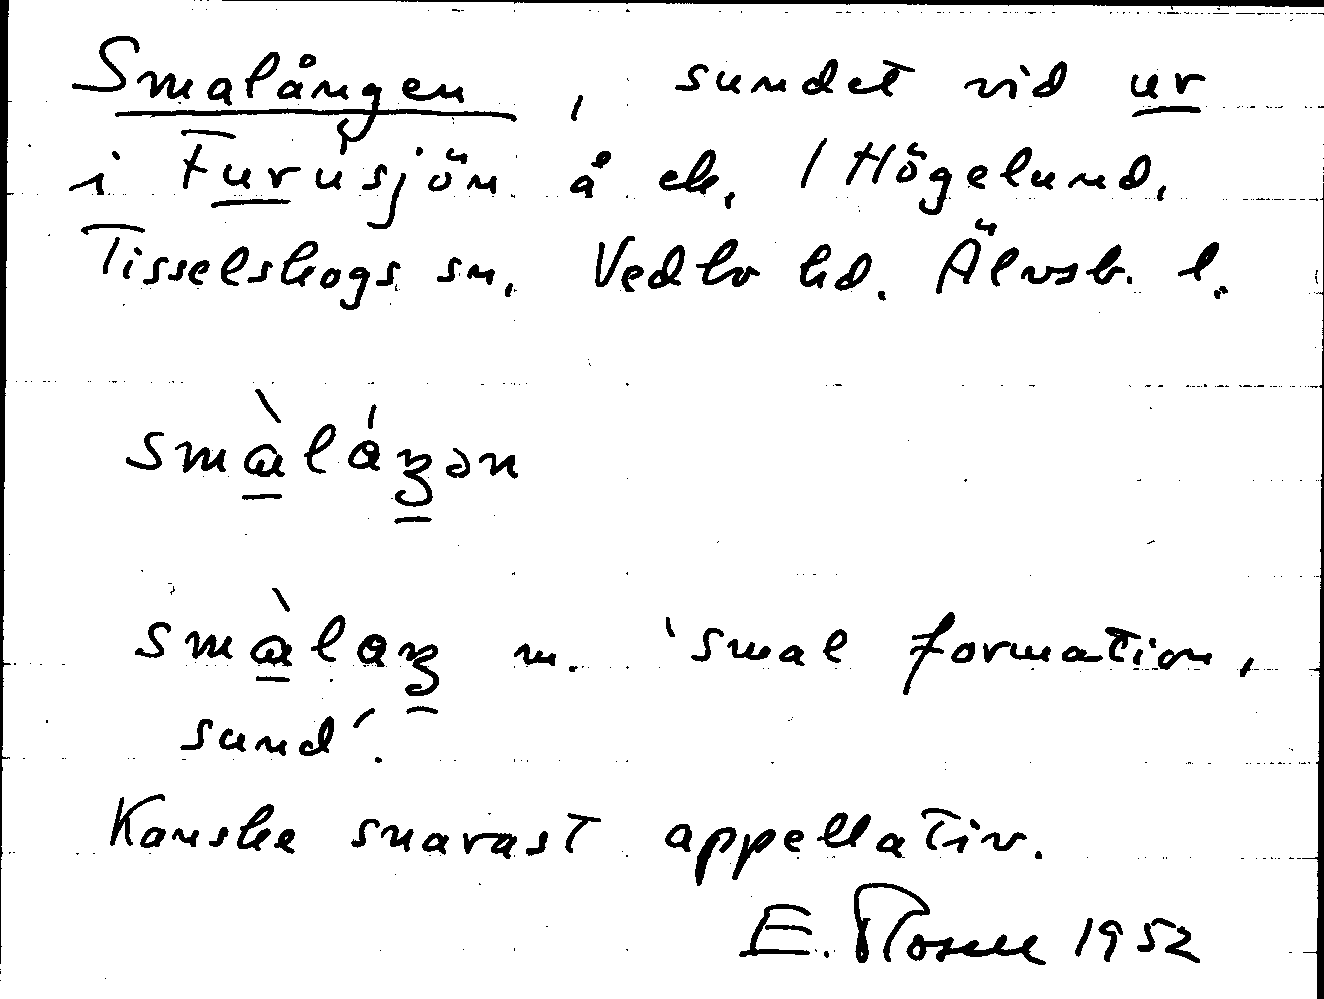 Smalången, sundet vid ur
i Furusjön å ek. 1 Högelund,
Tisselskogs sn, Vedbo hd. Älvsb. l.
smàláʒən
smàlaʒ m. 'smal formation,
sund'.
Kanske snarast appellativ.
E. Rosell 1952